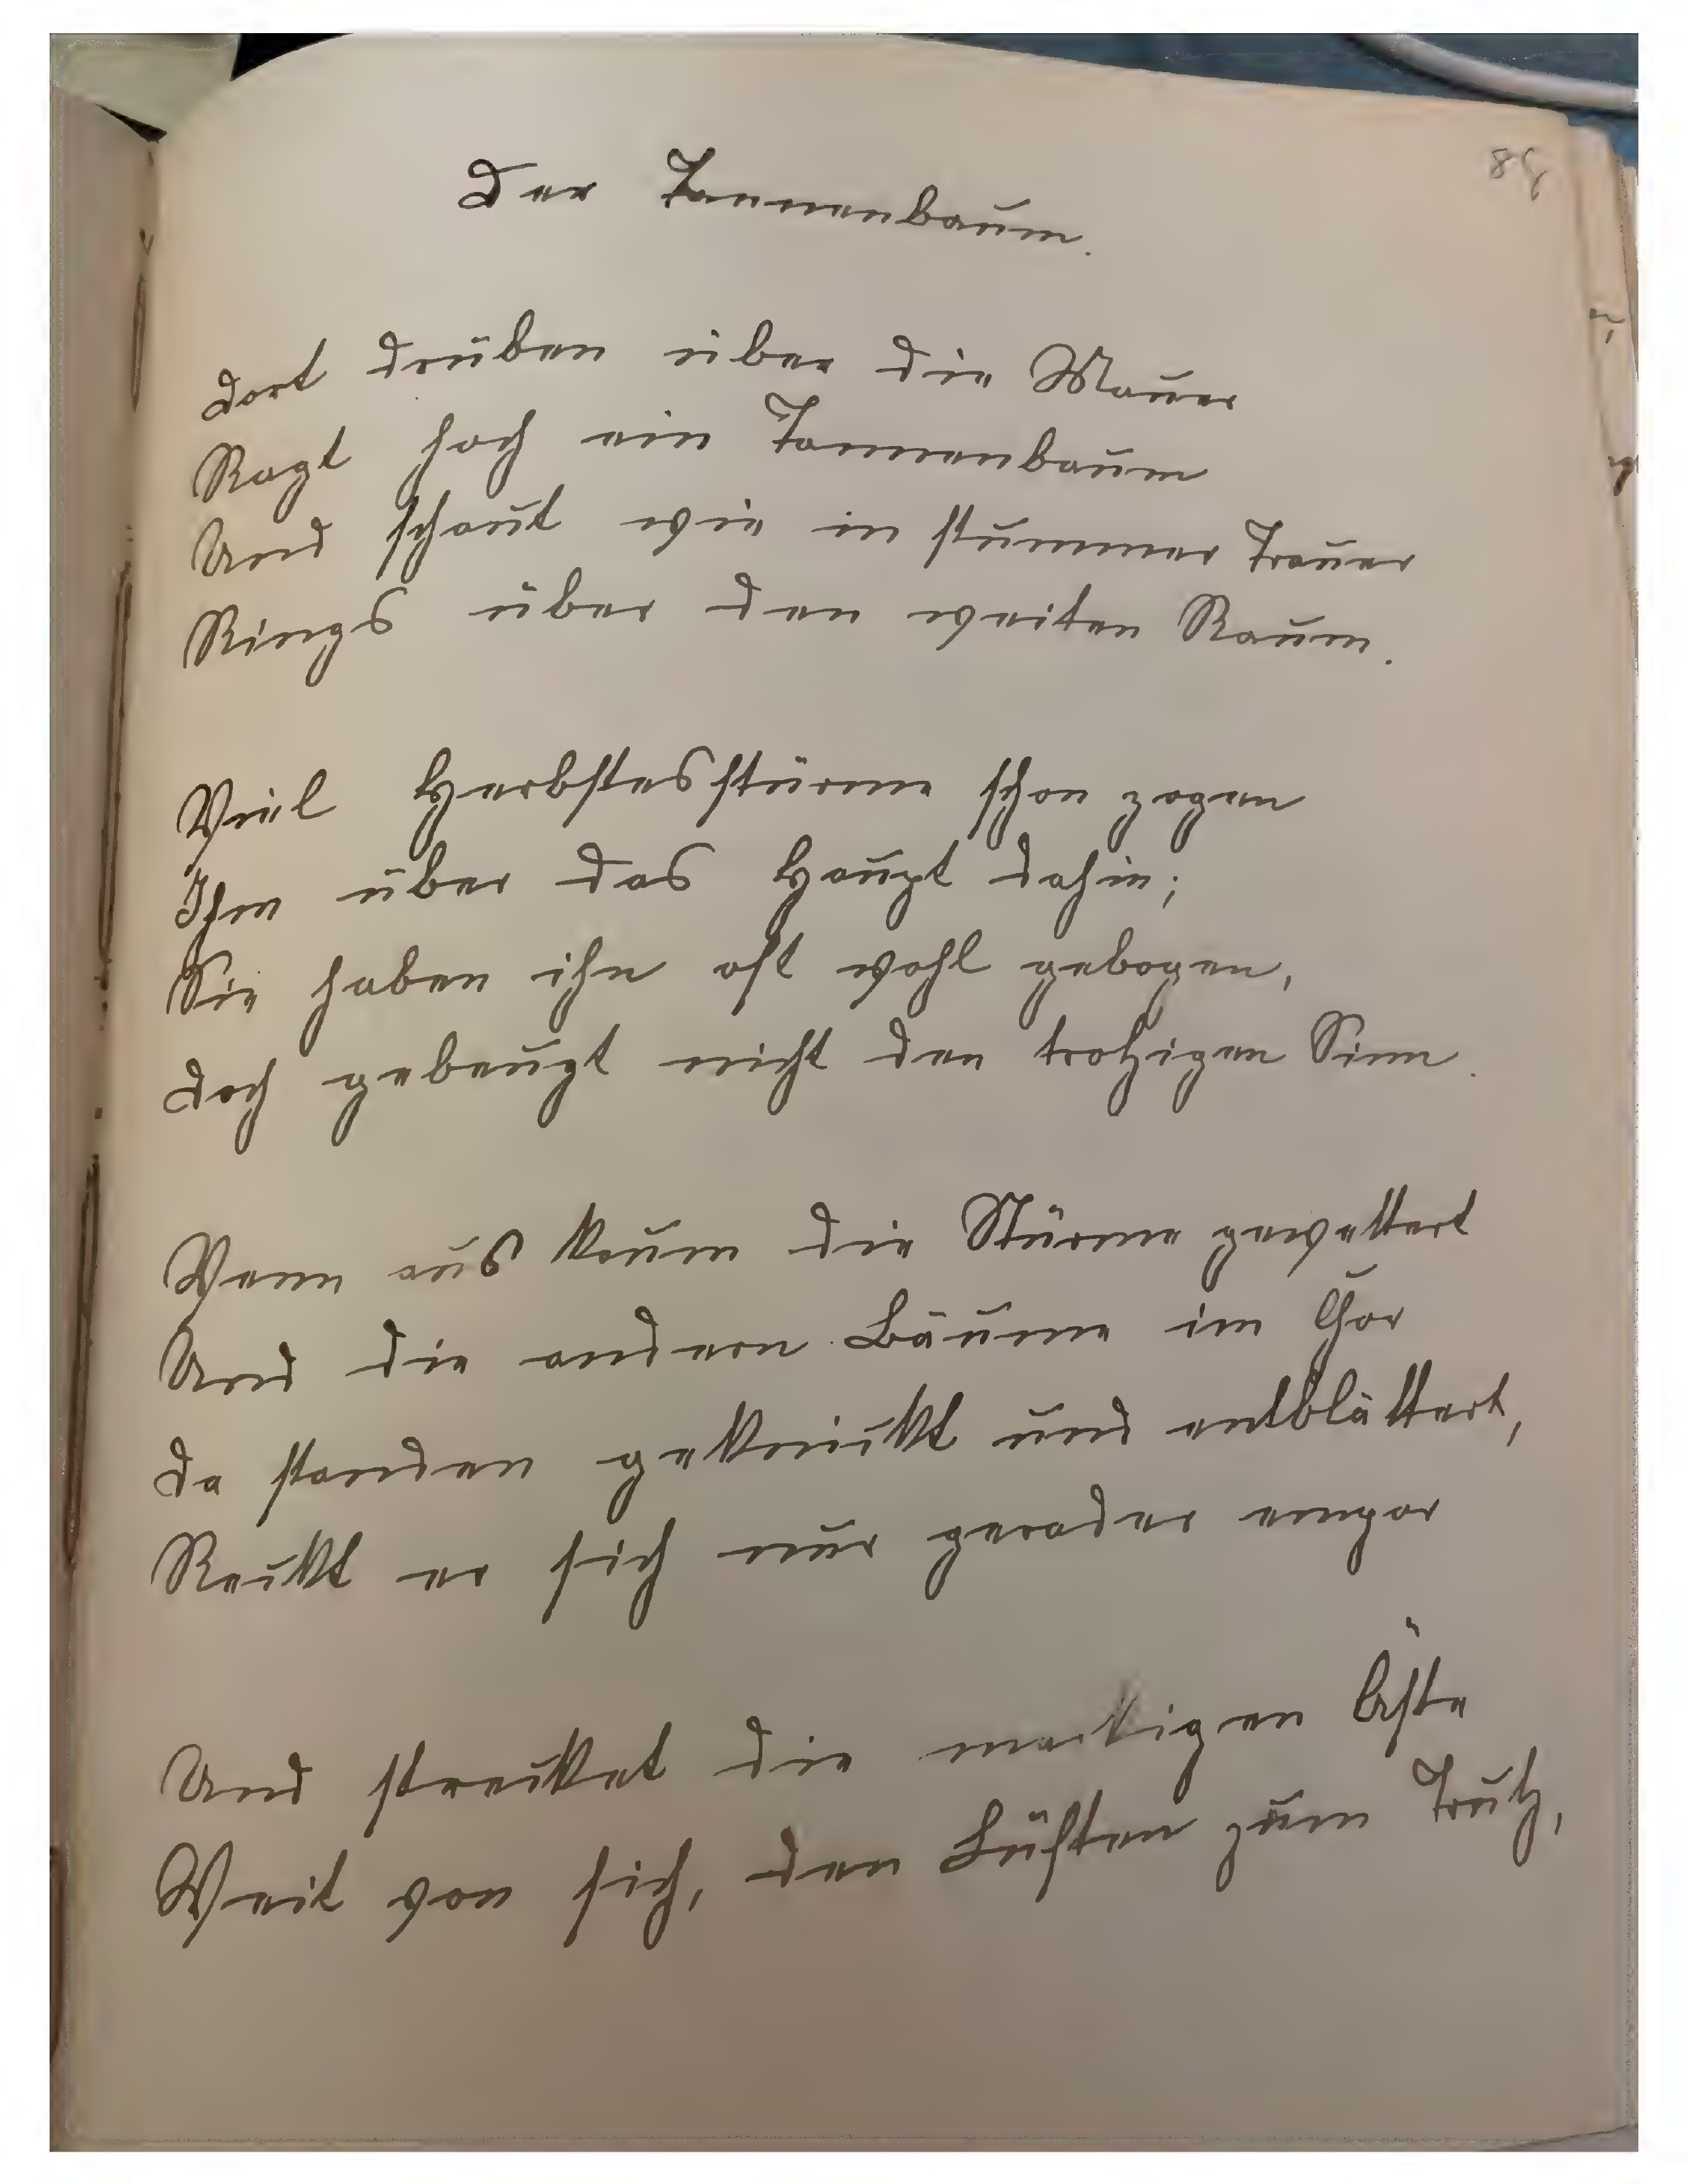 Der Tannenbaum.
Dort drüben über die Mauer
Ragt hoch ein Tannenbaum
Und schaut wie in stummer Trauer
Rings über den weiten Raum.
Viel Herbstesstürme schon zogen
Ihm über das Haupt dahin;
Sie haben ihn oft wohl gebogen,
Doch gebeugt nicht den trotzigen Sinn.
Wenn aus kaum die Stürme gewettert
Und die andern Bäume im Chor
Da standen geknickt und entblättert,
Reckt er sich nur gerader empor
Und strecket die markigen Äste
Weit von sich, den Lüften zum Trutz,